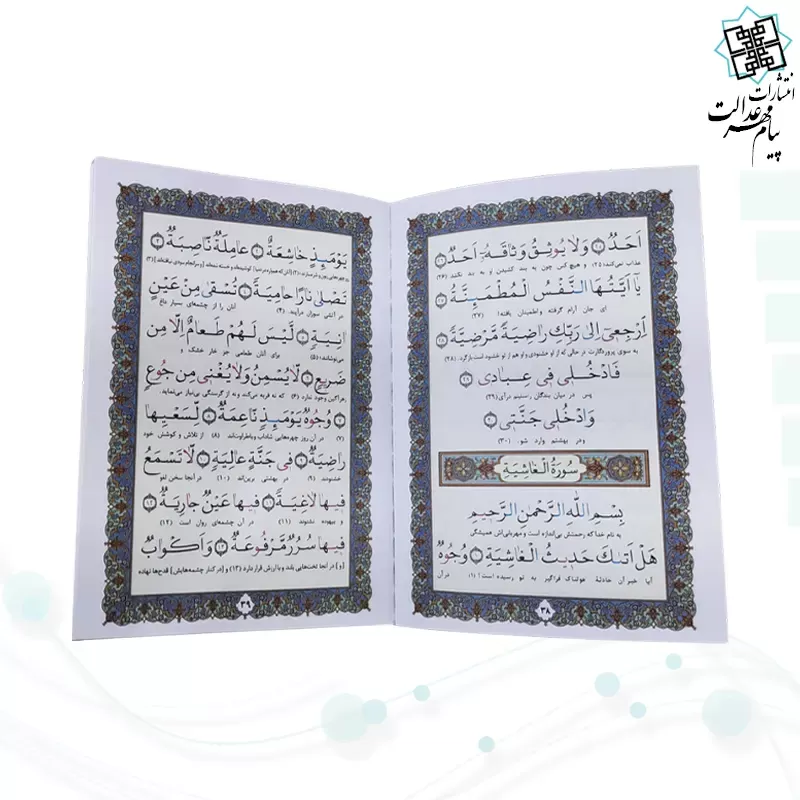 انتشارات
پیام مهر عدالت
اَحَدٌ ﴿٢٥﴾ وَلا يُوثِقُ وَثاقَهُ اَحَدٌ ﴿٢٦﴾
عذاب نمی‌کننده؛ (۲۵) و هیچ کس چون به بند کشیدن او به بند نکشد (۲۶)
يا اَيَّتُهَا النَّفْسُ الْمُطْمَئِنَّةُ ﴿٢٧﴾
ای جان آرام گرفته و اطمینان یافته! (۲۷)
اِرْجِعي اِلى رَبِّكِ راضِيَةً مَرْضِيَّةً ﴿٢٨﴾
به سوی پروردگارت در حالی که از او خشنودی و او هم از تو خشنود است بازگرد. (۲۸)
فَادْخُلي في عِبادي ﴿٢٩﴾
پس در میان بندگانم درآی (۲۹)
وَادْخُلي جَنَّتي ﴿٣٠﴾
و در بهشتم وارد شو. (۳۰)
سُورَةُ الْغاشِيَةِ
بِسْمِ اللهِ الرَّحْمٰنِ الرَّحيمِ
به نام خدا که رحمتش بی‌اندازه است و مهربانی‌اش همیشگی
هَلْ اَتٰىكَ حَديثُ الْغاشِيَةِ ﴿١﴾ وُجُوهٌ
آیا خبر آن حادثهٔ هولناک فراگیر به تو رسیده است؟ (۱) در آن
٣٨
يَوْمَئِذٍ خاشِعَةٌ ﴿٢﴾ عامِلَةٌ ناصِبَةٌ ﴿٣﴾
تَصْلى نارًا حامِيَةً ﴿٤﴾ تُسْقى مِنْ عَيْنٍ
در آتشی سوزان درآیند. (۴) آنان را از چشمه‌ای بسیار داغ
انِيَةٍ ﴿٥﴾ لَيْسَ لَهُمْ طَعامٌ اِلّا مِنْ
می‌نوشانند؛ (۵) برای آنان طعامی جز خار خشک و
ضَريعٍ ﴿٦﴾ لا يُسْمِنُ وَلا يُغْني مِنْ جُوعٍ
زهرآگین وجود ندارد (۶) که نه فربه می‌کند و نه از گرسنگی بی‌نیاز می‌نماید.
﴿٧﴾ وُجُوهٌ يَوْمَئِذٍ ناعِمَةٌ ﴿٨﴾ لِسَعْيِها
(۷) در آن روز چهره‌هایی شاداب و باطراوت‌اند (۸) از تلاش و کوشش خود
راضِيَةٌ ﴿٩﴾ في جَنَّةٍ عالِيَةٍ ﴿١٠﴾ لا تَسْمَعُ
خشنودند. (۹) در بهشتی برین‌اند (۱۰) در آنجا سخن لغو
فيها لاغِيَةً ﴿١١﴾ فيها عَيْنٌ جارِيَةٌ ﴿١٢﴾
و بیهوده نشنوند (۱۱) در آن چشمه‌ای روان است (۱۲)
فيها سُرُرٌ مَرْفُوعَةٌ ﴿١٣﴾ وَ اَكْوابٌ
[و] در آنجا تخت‌هایی بلند و باارزش قرار دارد (۱۳) و [در کنار چشمه‌هایش] قدح‌ها نهاده
٣٩